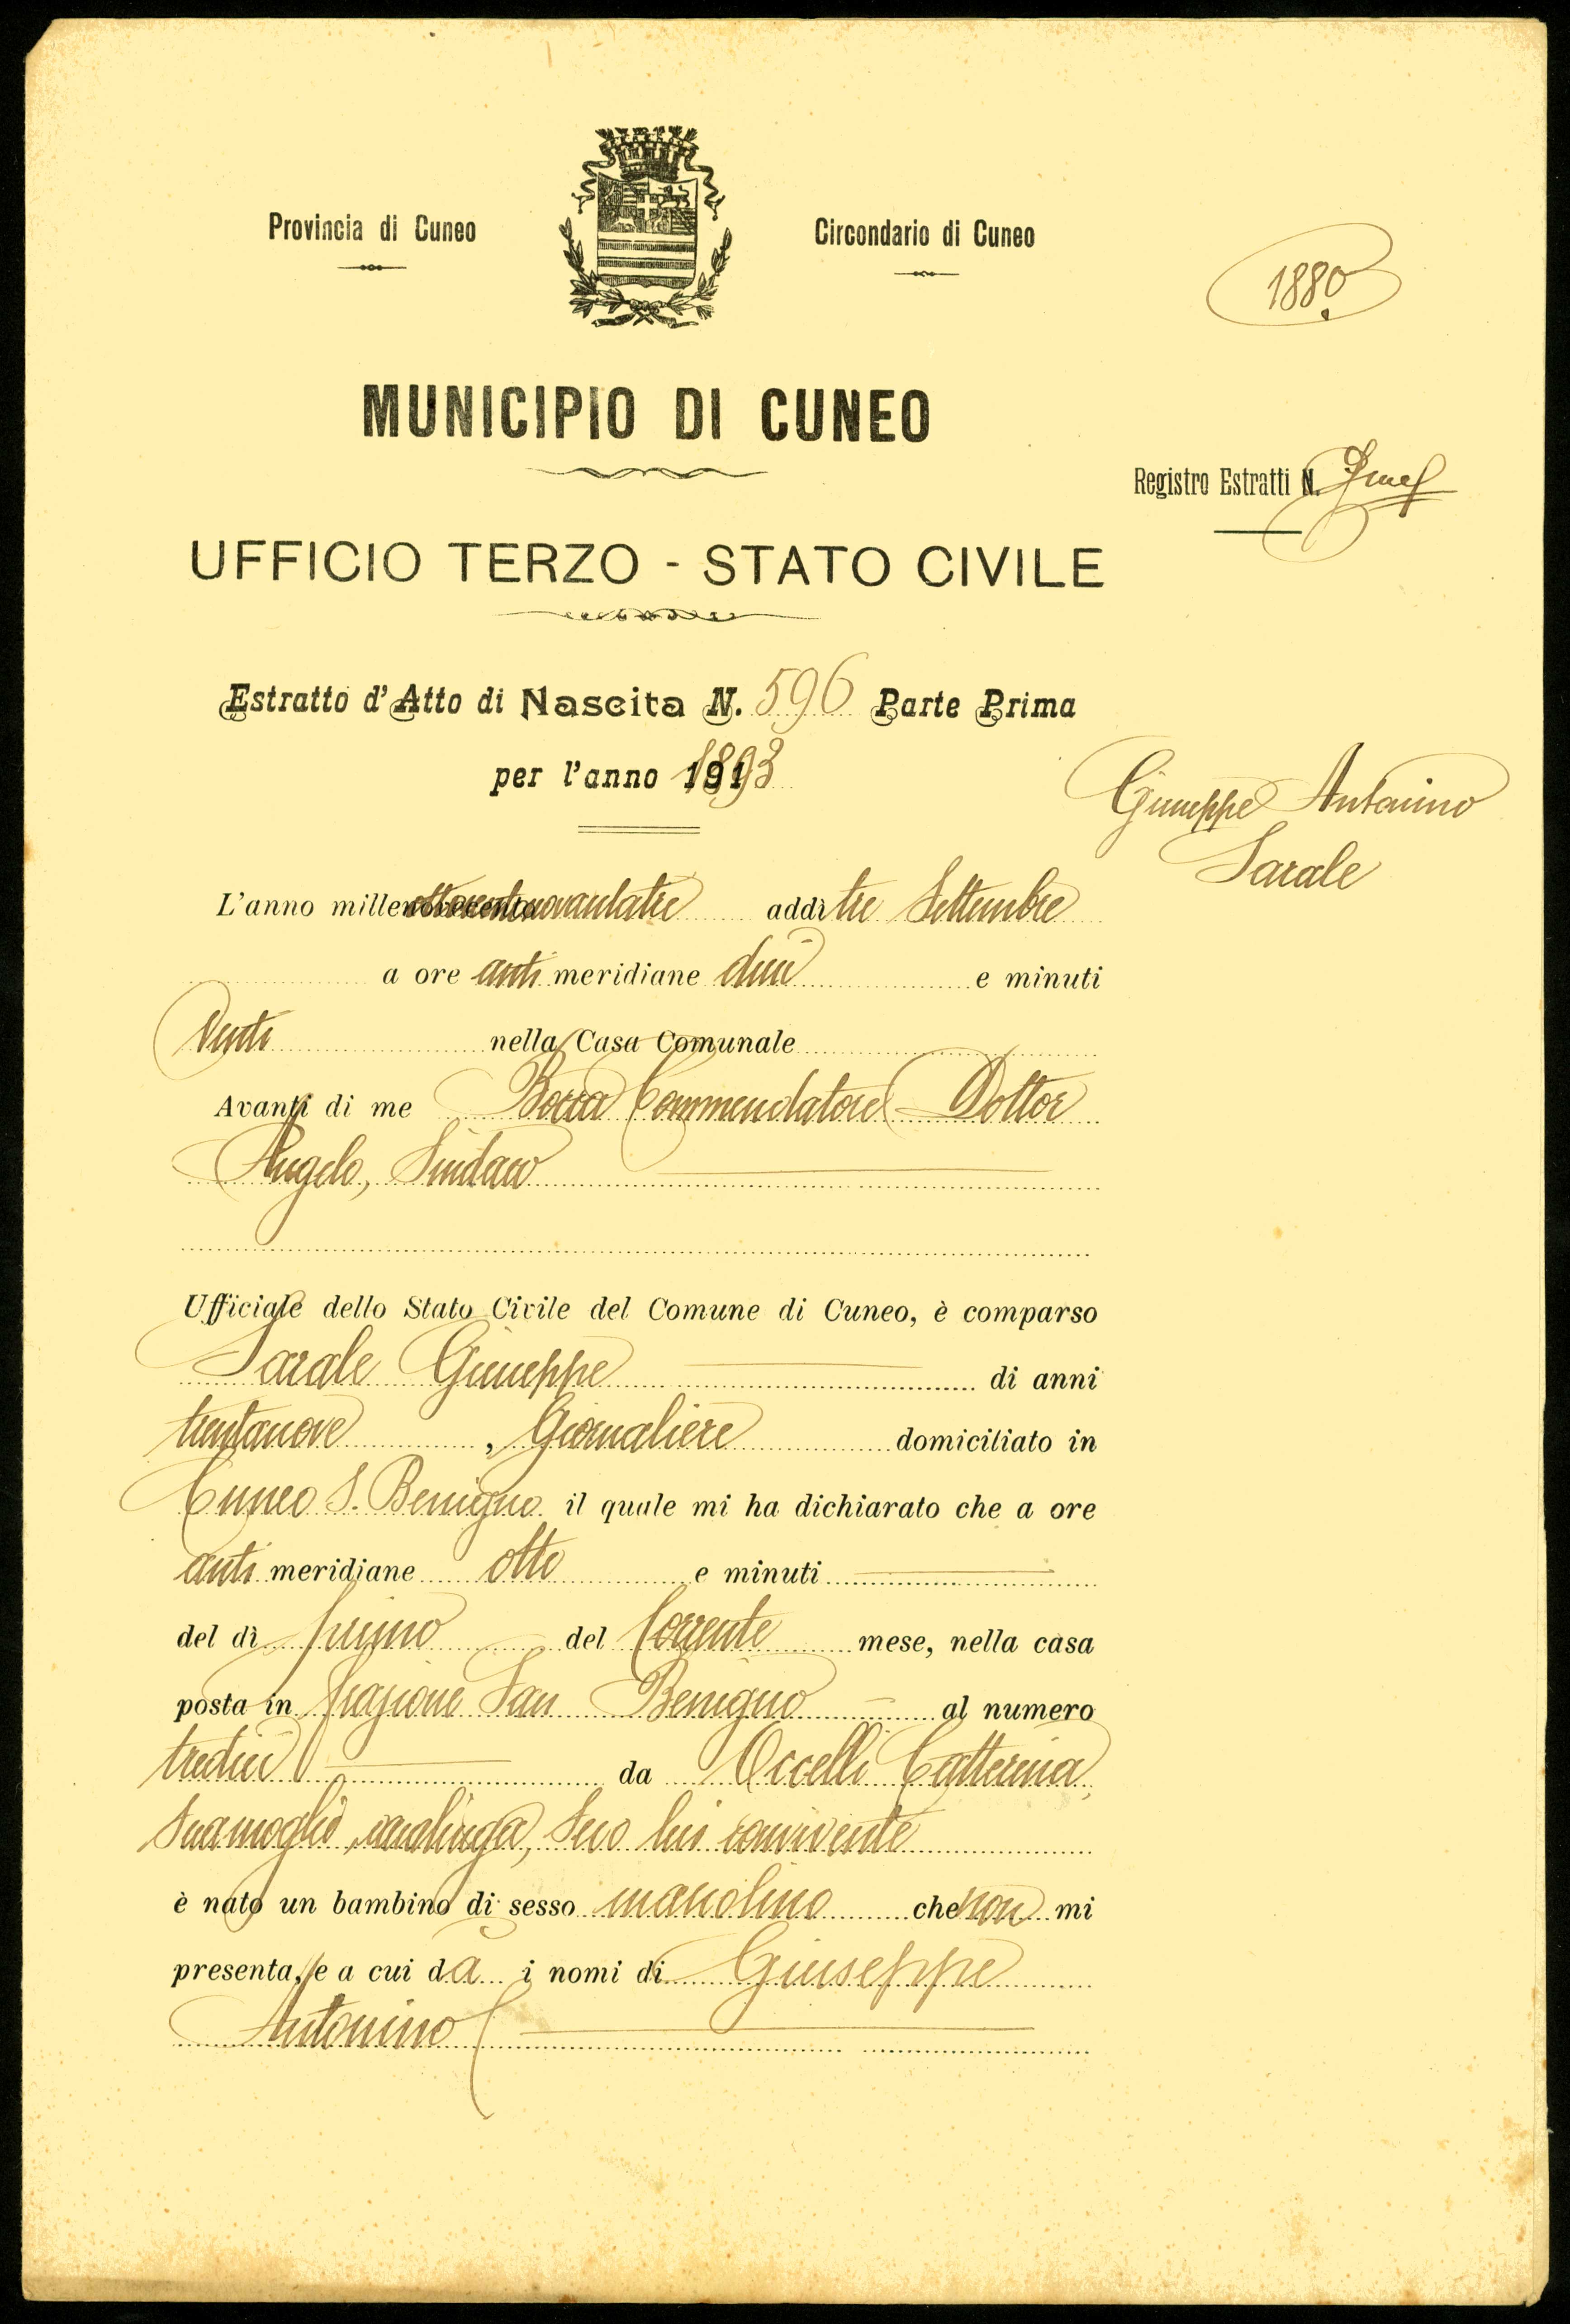 Provincia di Cuneo
Circondario di Cuneo
1880
MUNICIPIO DI CUNEO
Registro Estratti N.
UFFICIO TERZO - STATO CIVILE
Estratto d'Atto di Nascita N. 596 Parte Prima
per l'anno 1893
Giuseppe Antonino
Sarale
L'anno milleottocentonovantatre addì tre Settembre
a ore anti meridiane dieci e minuti
venti nella Casa Comunale
Avanti di me Commendatore Dottor
Angelo, Sindaco
Ufficiale dello Stato Civile del Comune di Cuneo, è comparso
Sarale Giuseppe di anni
trentanove, Giornaliere domiciliato in
Cuneo S. Benigno il quale mi ha dichiarato che a ore
anti meridiane otto e minuti
del dì primo del corrente mese, nella casa
posta in frazione San Benigno al numero
tredici da Occelli Catterina,
sua moglie, casalinga, seco lui convivente
è nato un bambino di sesso mascolino che non mi
presenta, e a cui dà i nomi di Giuseppe
Antonino